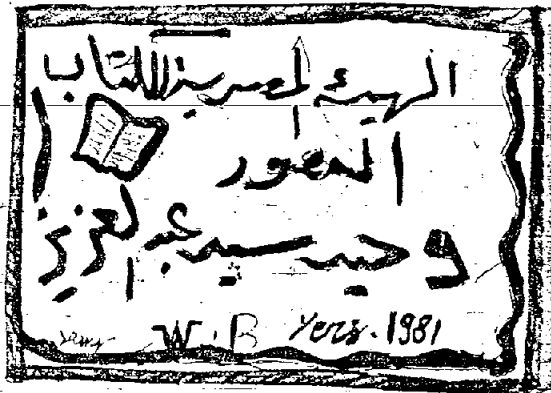 الهيئة المصرية للكتاب
المصور
وحيد سيد عبد العزيز
W.B Yers.1981